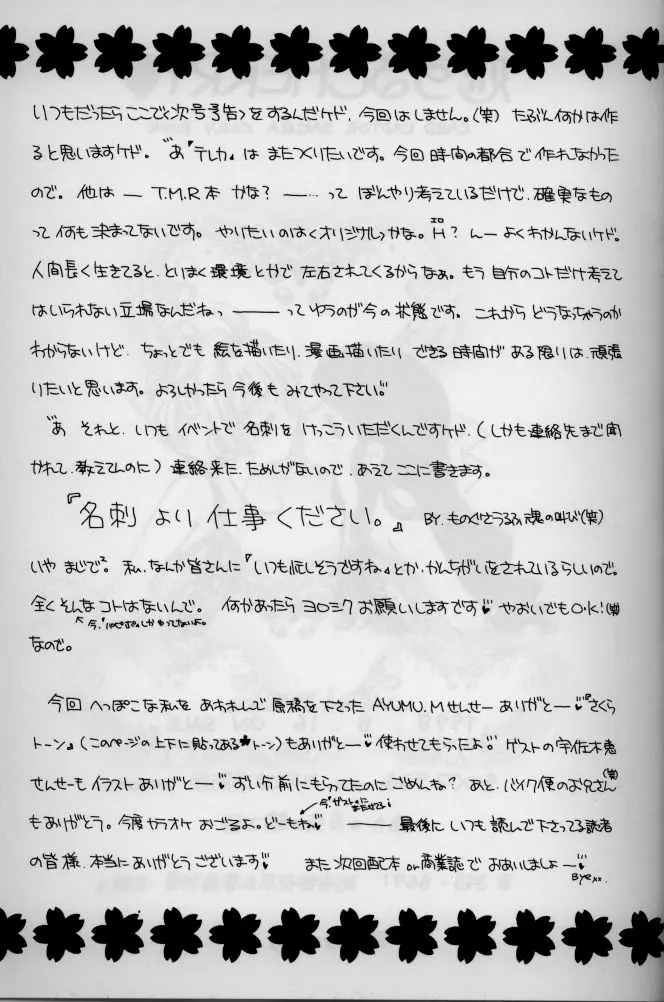 いつもだったらここで<次号予告>をするんだケド、今回はしません。(笑) たぶん何かは作
ると思いますケド。"あ『テレカ』は またつくりたいです。今回 時間の都合で作れなかった
ので。他は ― T.M.R本 かな? ―…って ぼんやり考えているだけで、確実なもの
って何も決まってないです。 やりたいのは<オリジナル>かな。H? んー よくわかんないケド。
エロ
人間長く生きてると、とにかく環境とかで左右されてくるからなぁ。もう自分のコトだけ考えて
はいられない立場なんだねっ ――― ってゆうのが今の状態です。 これから どうなっちゃうのか
わからないけど、ちょっとでも 絵を描いたり、漫画描いたり できる時間が ある限りは、頑張
りたいと思います。よろしかったら今後も みてやって下さい。
"あ それと、いつも イベントで 名刺を けっこういただくんですケド、(しかも連絡先まで聞
かれて、教えてんのに) 連絡来た、ためしがないので、あえて ここに書きます。
『名刺 より 仕事ください。』 BY. ものぐさうるふ 魂の叫び(笑)
いや まじで。 私、なんか皆さんに『いつも忙しそうですね』とか、かんちがいをされているらしいので。
全くそんなコトはないんで。 何かあったら ヨロシク お願いしますです♥ やおいでもO・K!(笑)
なので。
今回 へっぽこな私を あわれんで 原稿を下さった AYUMU.Mせんせー ありがとー♥『さくら
トーン』(このページの上下に貼ってあるトーン)もありがとー♥ 使わせてもらったよ! ゲストの宇佐木恵
せんせーも イラスト ありがとー♥ ずい分前にもらってたのに ごめんね? あと、バイク便のお兄さん(笑)
もありがとう。今度カラオケ おごるよ。どーもね♥ ――― 最後に いつも 読んで下さってる読者
の皆様、本当にありがとうございます♥ また 次回配本 or 商業誌で おあいしましょー♥
Bye××.